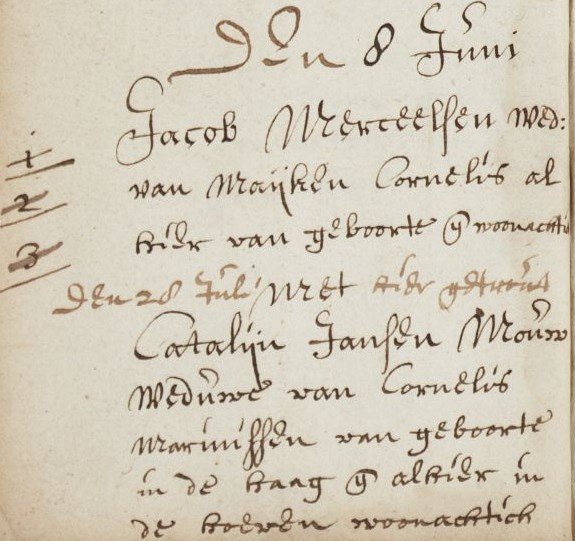 Den 8 Juni
Jacob Merceelsen wed:
van Maijken Cornelis al
hier van geboorte en woonachtich
1
2
3
den 28 Juli met hier getrout
Catalijn Jansen Mouw
Weduwe van Cornelis
Marinissen van geboorte
in de haag en alhier in
de hoeven woonachtich